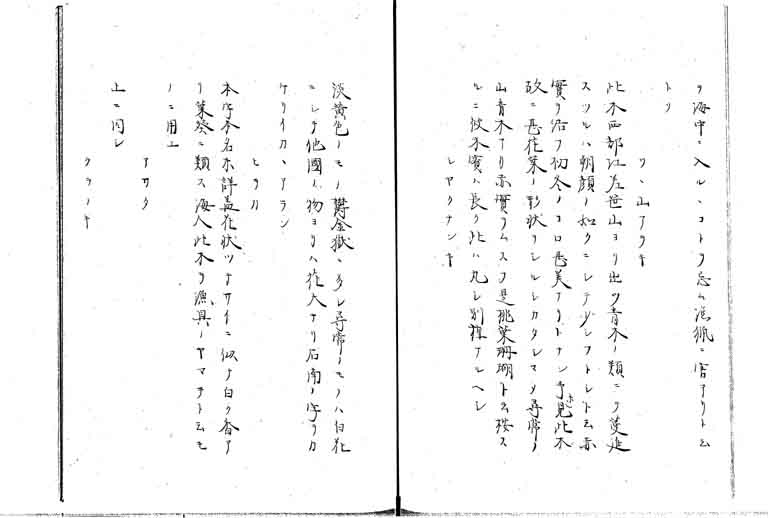 ヲ海中ニ入ル、コトヲ忌ム漁猟ニ害アリト云
トリ
ツヽ山アヲキ
此木西部江左世山ヨリ出ツ青木ノ類ニテ蔓延
スツルハ朝顔ノ如クニシテ少シフトシト云赤
實ヲ結フ初冬ノコロ甚美ナリトナン予未見此木
故ニ甚花葉ノ形状ヲシルシカタシマタ尋常ノ
山青木アリ赤實ヲムスフ是桃葉珊瑚ト云按ス
ルニ彼木實ハ長ク此ハ丸シ別種ナルヘシ
シヤクナンキ
淡黄色ノモノ鬱金嶽ニ多シ尋常ノモノハ白花
ニシテ他國ノ物ヨリハ花大ナリ石南ノ字ヲカ
ケリイカヽアラン
ヒラカ
本字本名未詳葢花状ツナサイニ似テ白ク香ア
リ葉葵ニ類ス海人此木ヲ漁具ノヤマテト云モ
ノニ用ユ
アサタ
上ニ同シ
クラノキ